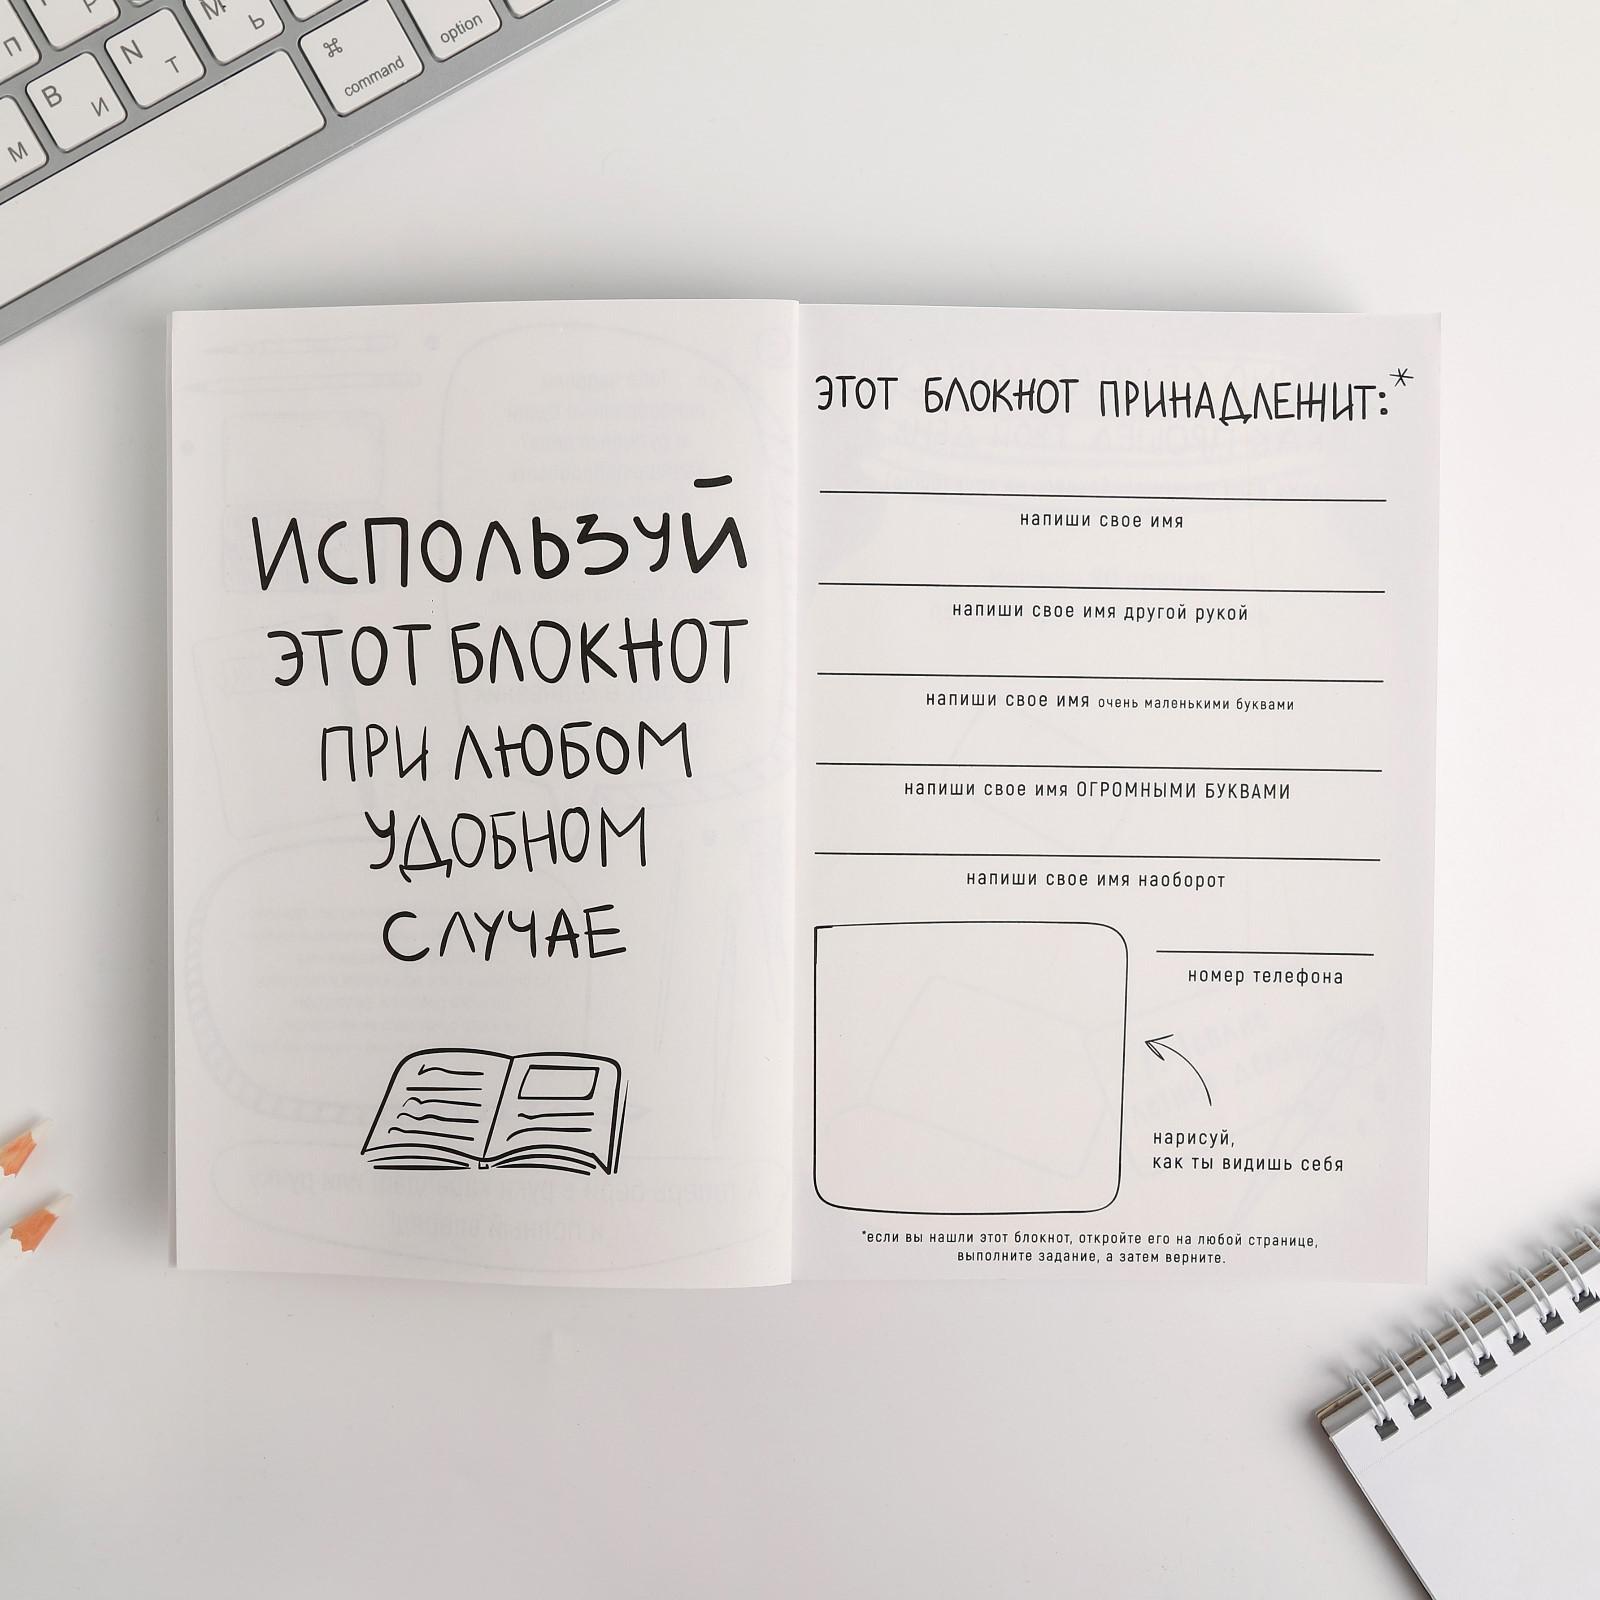 П
Р
М
Ь
⌘
option
N
Т
command
В
И
М
ИСПОЛЬЗУЙ
ЭТОТ БЛОКНОТ
ПРИ ЛЮБОМ
УДОБНОМ
СЛУЧАЕ
ЭТОТ БЛОКНОТ ПРИНАДЛЕЖИТ:*
напиши свое имя
напиши свое имя другой рукой
напиши свое имя очень маленькими буквами
напиши свое имя ОГРОМНЫМИ БУКВАМИ
напиши свое имя наоборот
номер телефона
нарисуй,
как ты видишь себя
*если вы нашли этот блокнот, откройте его на любой странице,
выполните задание, а затем верните.